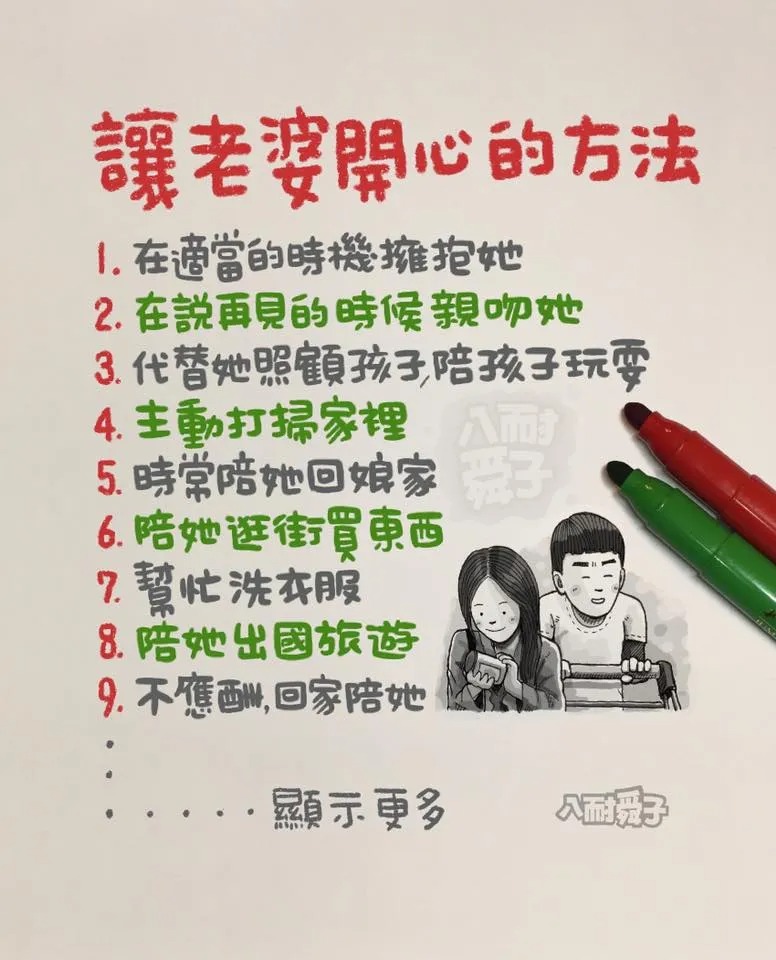 讓老婆開心的方法
1. 在適當的時機擁抱她
2. 在說再見的時候親吻她
3. 代替她照顧孩子,陪孩子玩耍
4. 主動打掃家裡
八耐
舜子
5. 時常陪她回娘家
6. 陪她逛街買東西
7. 幫忙洗衣服
8. 陪她出國旅遊
9. 不應酬,回家陪她
.
.
. . . . . . 顯示更多
八耐舜子